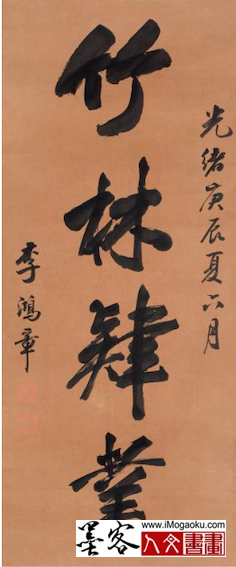 光緒庚辰夏六月
竹林肄業
李鴻章
www.iMogaoku.com
墨客人文書畫